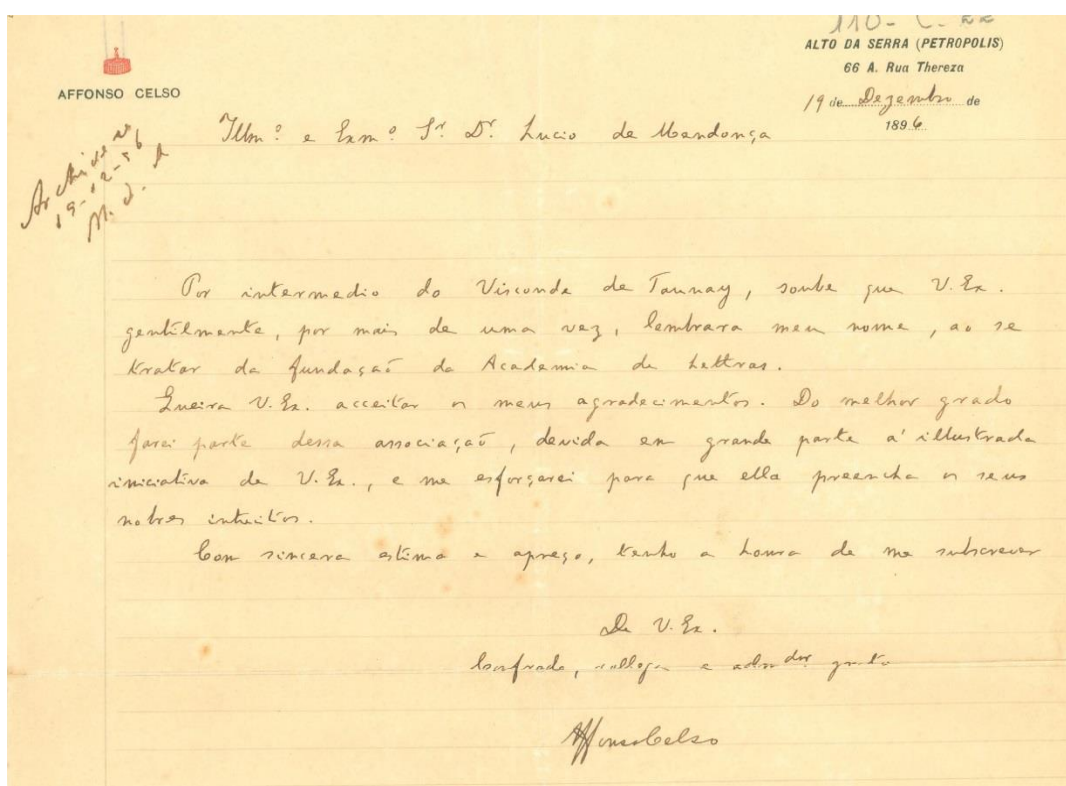 110 - C - 22
ALTO DA SERRA (PETROPOLIS)
66 A. Rua Thereza
AFFONSO CELSO
19 de Dezembro de
1896
Illm.º e Exm.º Sr. Dr. Lucio de Mendonça
Archive-se
19-12-96
M. d. A
Por intermedio do Visconde de Taunay, soube que V. Ex.
gentilmente, por mais de uma vez, lembrara meu nome, ao se
tratar da fundação da Academia de Lettras.
Queira V. Ex. acceitar os meus agradecimentos. Do melhor grado
farei parte dessa associação, devida em grande parte á illustrada
iniciativa de V. Ex., e me esforçarei para que ella preencha os seus
nobres intuitos.
Com sincera estima e apreço, tenho a honra de me subscrever
De V. Ex.
Confrade, collega e adm.dor grato
Affonso Celso